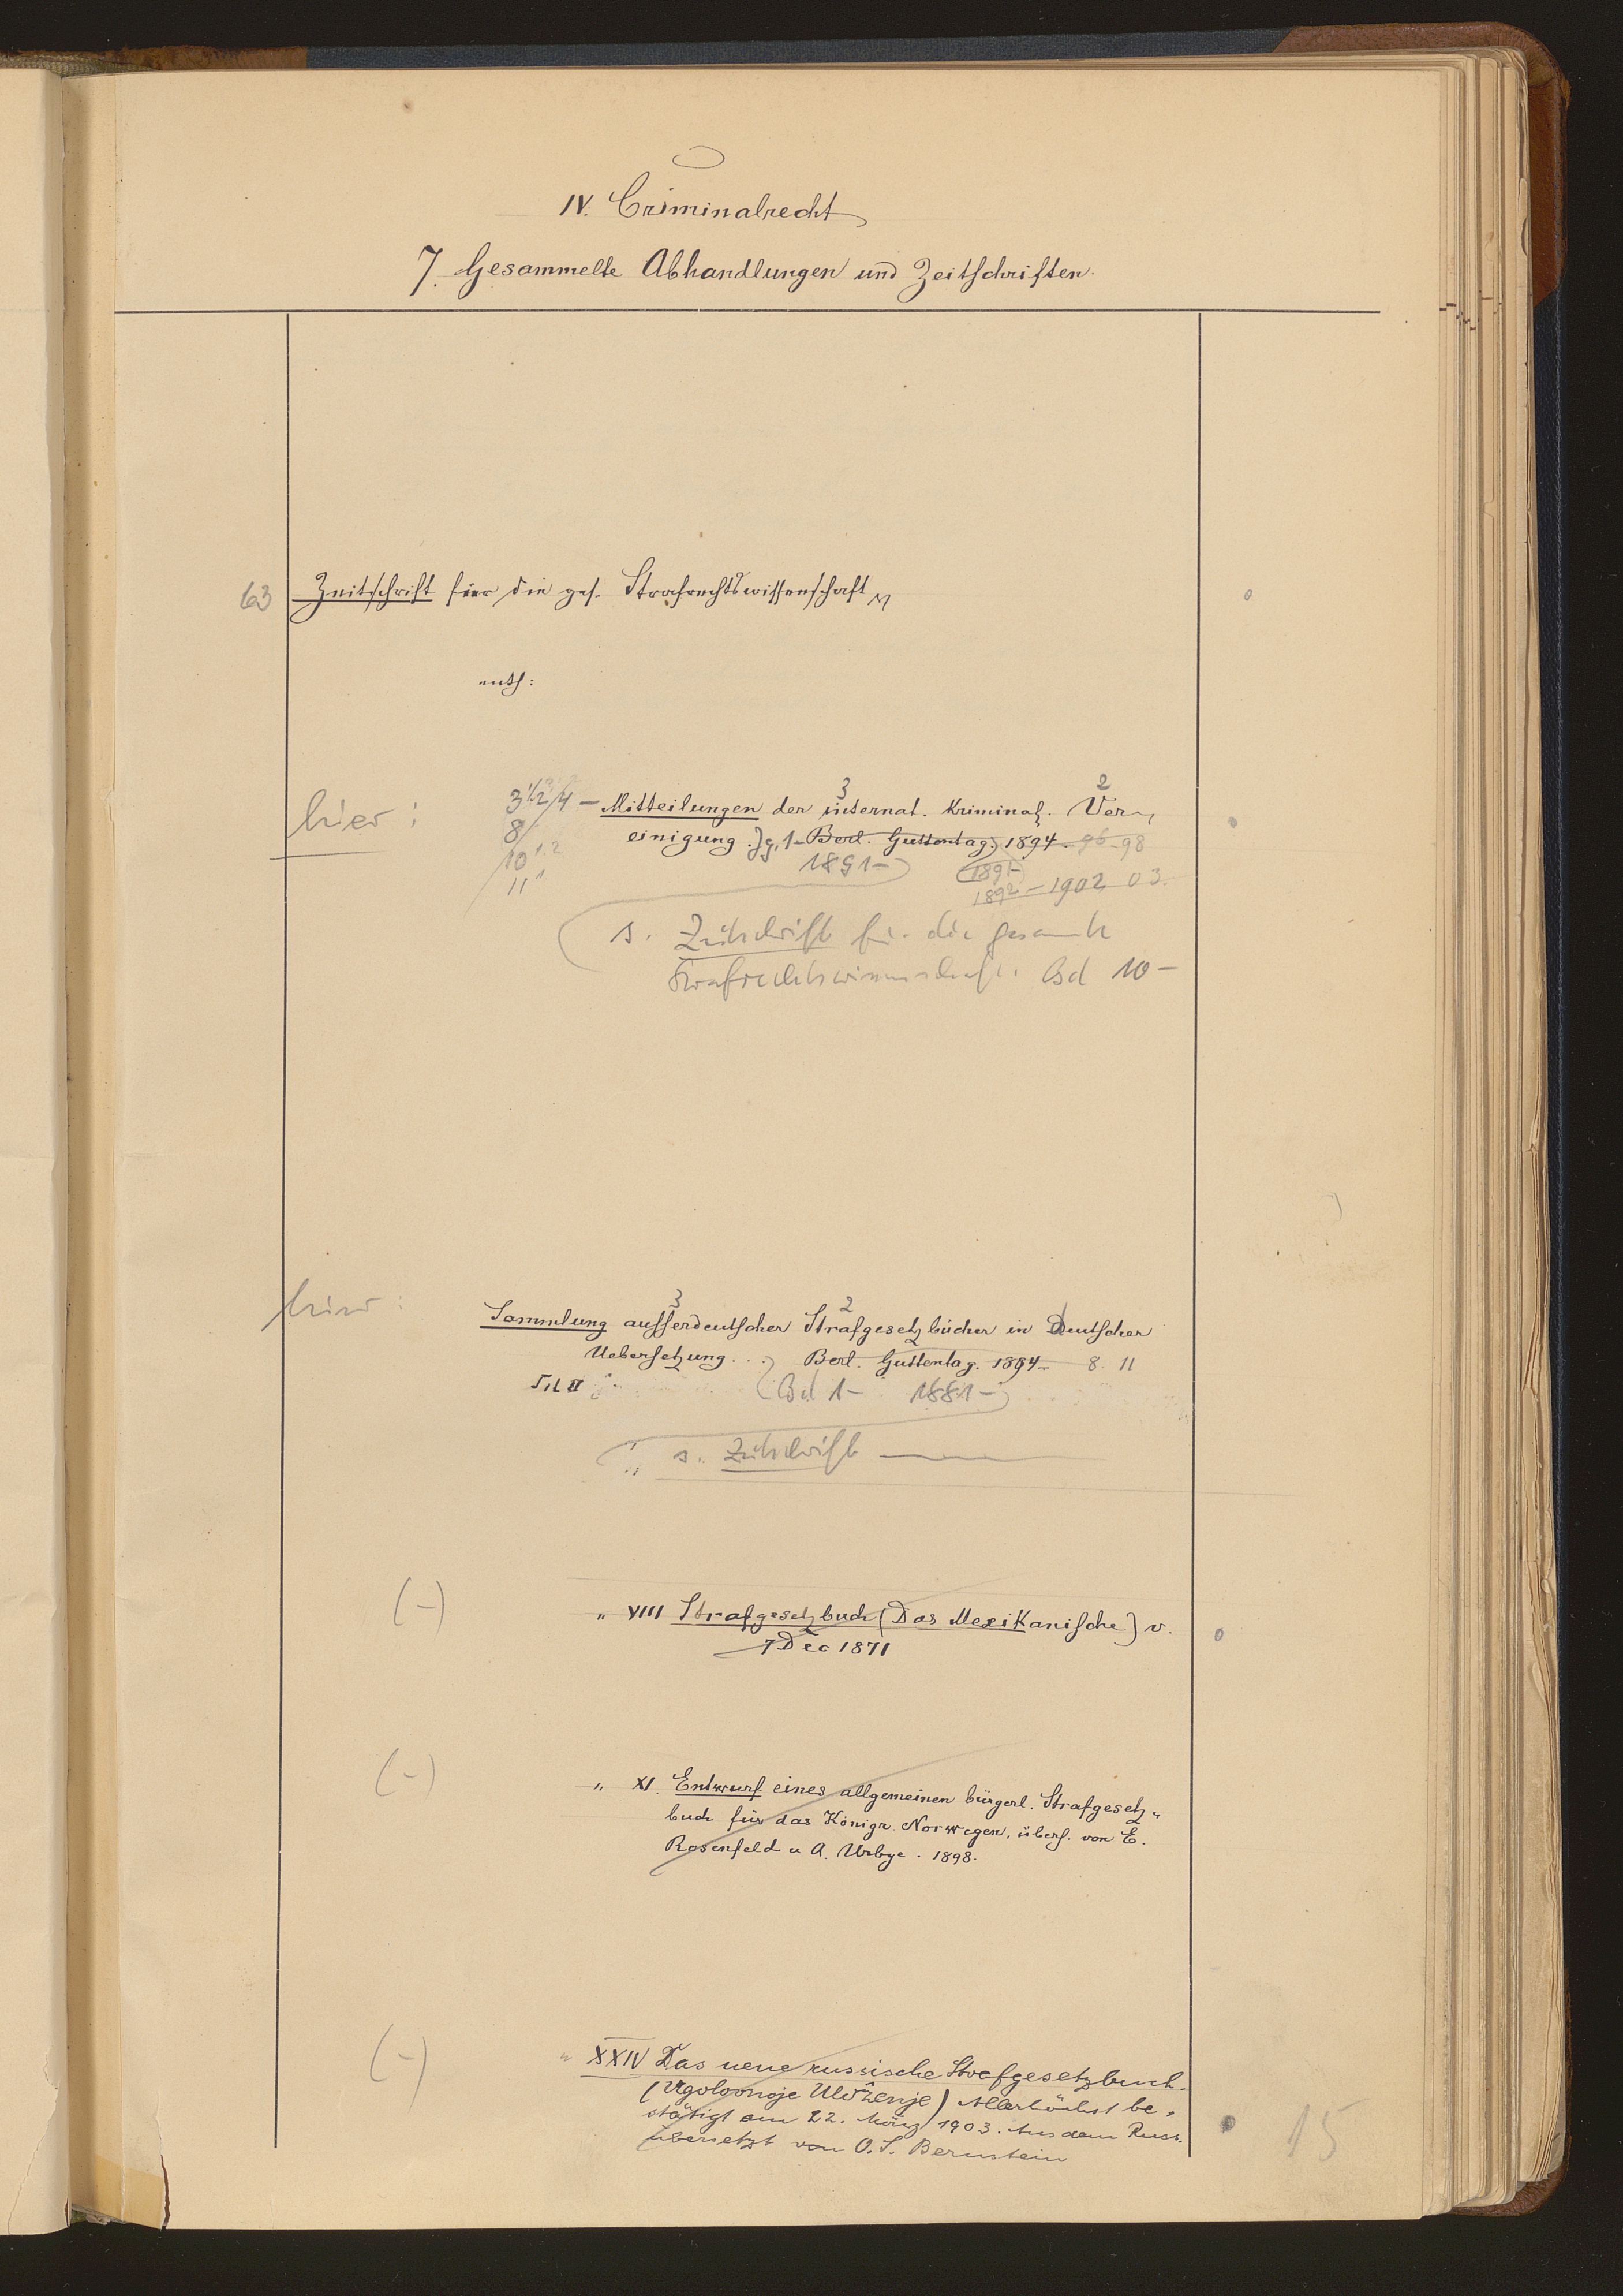 IV. Criminalrecht
7. Gesammelte Abhandlungen und Zeitschriften.
63 Zeitschrift für die ges. Strafrechtswissenschaft
enth:
hier:
3 1/2/4 – Mitteilungen der internat. Kriminal. Ver-
3 2
8 einigung. Jg. 1- Berl. Guttentag. 1894 - 96 - 98
10 1.2 1891– 1891–
11 1 1892 – 1902 03.
s. Zeitschrift für die gesamte
Strafrechtswissenschaft. Bd 10 –
hier:
3 2
Sammlung ausserdeutscher Strafgesetzbücher in Deutscher
Uebersetzung... Berl. Guttentag. 1894– 8. 11
(Bd 1– 1881–)
s. Zeitschrift
(-) " VIII Strafgesetzbuch (Das Mexikanische) v.
7 Dec 1871
(-) " XI. Entwurf eines allgemeinen bürgerl. Strafgesetz„
buch für das Königr. Norwegen, übers. von E.
Rosenfeld u A. Urbye. 1898.
(-) " XXIV Das neue russische Strafgesetzbuch.
(Ugolovnoje Uloženje) Allerhöchst be„
stätigt am 22. März 1903. Aus dem Russ.
übersetzt von O. S. Bernstein
15